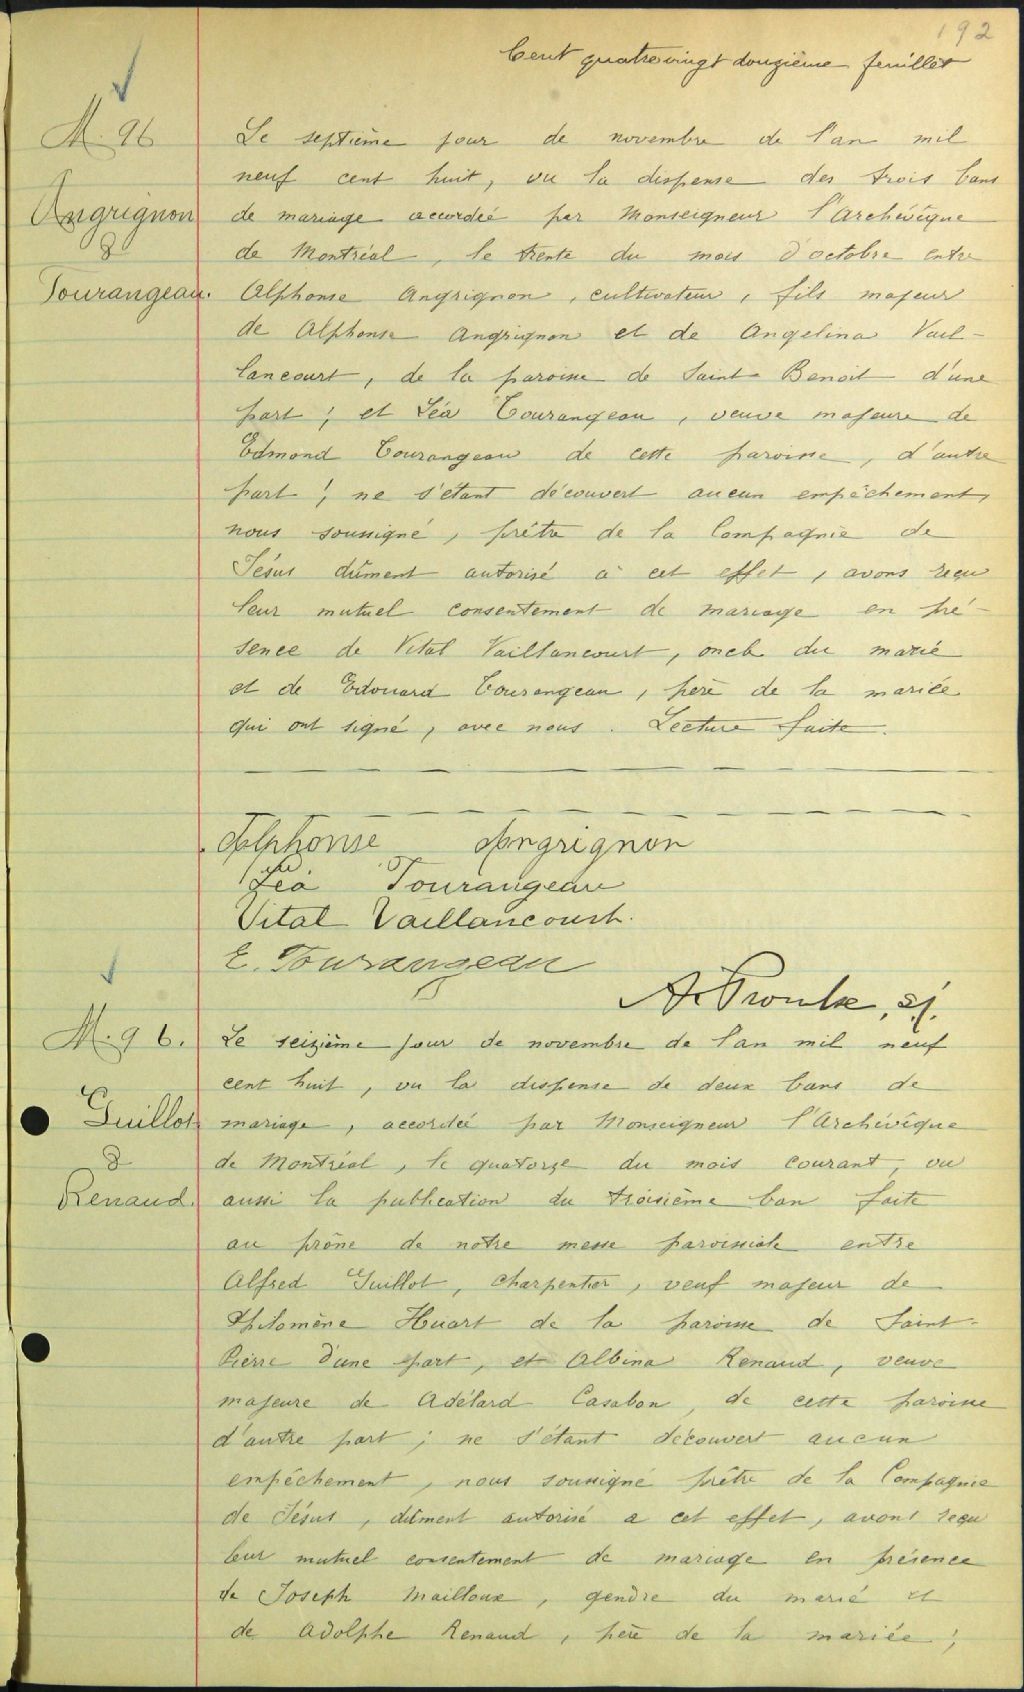 192
Cent quatrevingt douzième feuillet
M. 96
Angrignon
&
Tourangeau.
Le septième jour de novembre de l'an mil
neuf cent huit, vu la dispense des trois bans
de mariage accordée par Monseigneur l'Archévêque
de Montréal, le trente du mois d'octobre entre
Alphonse Angrignon, cultivateur, fils majeur
de Alphonse Angrignon et de Angelina Vail-
lancourt, de la paroisse de Saint-Benoit d'une
part; et Léa Tourangeau, veuve majeure de
Edmond Tourangeau de cette paroisse, d'autre
part; ne s'étant découvert aucun empêchement,
nous soussigné, prêtre de la Compagnie de
Jésus dûment autorisé à cet effet, avons reçu
leur mutuel consentement de mariage en pré-
sence de Vital Vaillancourt, oncle du marié
et de Edouard Tourangeau, père de la mariée
qui ont signé, avec nous. Lecture faite.
Alphonse Angrignon
Léa Tourangeau
Vital Vaillancourt.
E. Tourangeau
A. s.j.
M. 96.
Guillot
&
Renaud.
Le seizième jour de novembre de l'an mil neuf
cent huit, vu la dispense de deux bans de
mariage, accordée par Monseigneur l'Archévêque
de Montréal, le quatorze du mois courant, vu
aussi la publication du troisième ban faite
au prône de notre messe paroissiale entre
Alfred Guillot, charpentier, veuf majeur de
Philomène Huart de la paroisse de Saint-
Pierre d'une part, et Albina Renaud, veuve
majeure de Adélard Casabon, de cette paroisse
d'autre part; ne s'étant découvert aucun
empêchement, nous soussigné prêtre de la Compagnie
de Jésus, dûment autorisé a cet effet, avons reçu
leur mutuel consentement de mariage en présence
de Joseph Mailloux, gendre du marié et
de Adolphe Renaud, père de la mariée;